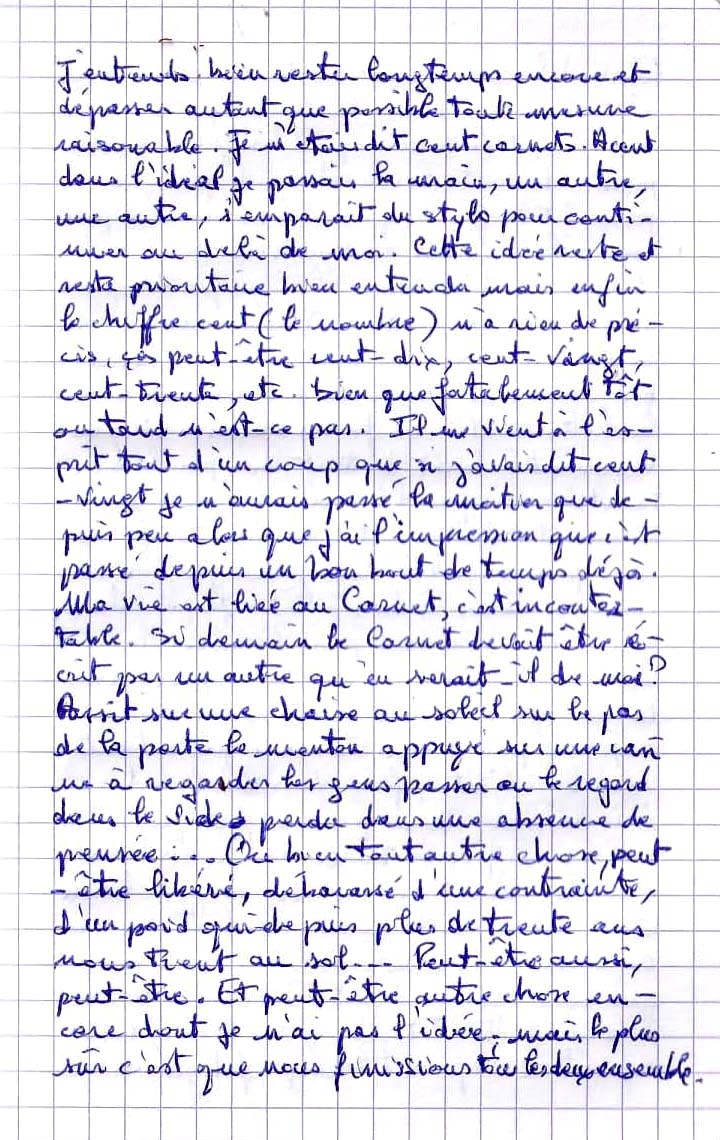 J'entends bien rester longtemps encore et
dépasser autant que possible toute mesure
raisonable. Je m'étais dit cent carnets. A cent
dans l'idéal je passais la main, un autre,
une autre, s'emparait du stylo pour conti-
nuer au delà de moi. Cette idée reste et
resta prioritaire bien entendu mais enfin
le chiffre cent (le nombre) n'a rien de pré-
cis, ças peut-être cent-dix, cent-vingt,
cent-trente, etc. bien que fatalement tôt
ou tard n'est-ce pas. Il me vient à l'es-
prit tout d'un coup que si j'avais dit cent
-vingt je n'aurais passé la moitier que de-
puis peu alors que j'ai l'impression que c'est
passé depuis un bon bout de temps déjà.
Ma vie est liée au Carnet, c'est incontes-
table. Si demain le Carnet devait être é-
crit par un autre qu'en serait-il de moi?
Assit sur une chaise au soleil sur le pas
de la porte le menton appuyé sur une can
ne à regarder les gens passer ou le regard
dans le vide perdu dans une absence de
pensée... Ou bien tout autre chose, peut
-être libéré, débarassé d'une contrainte,
d'un poid qui depuis plus de trente ans
nous tient au sol... Peut-être aussi,
peut-être. Et peut-être autre chose en-
core dont je n'ai pas l'idée, mais le plus
sûr c'est que nous finissions tous les deux ensemble.